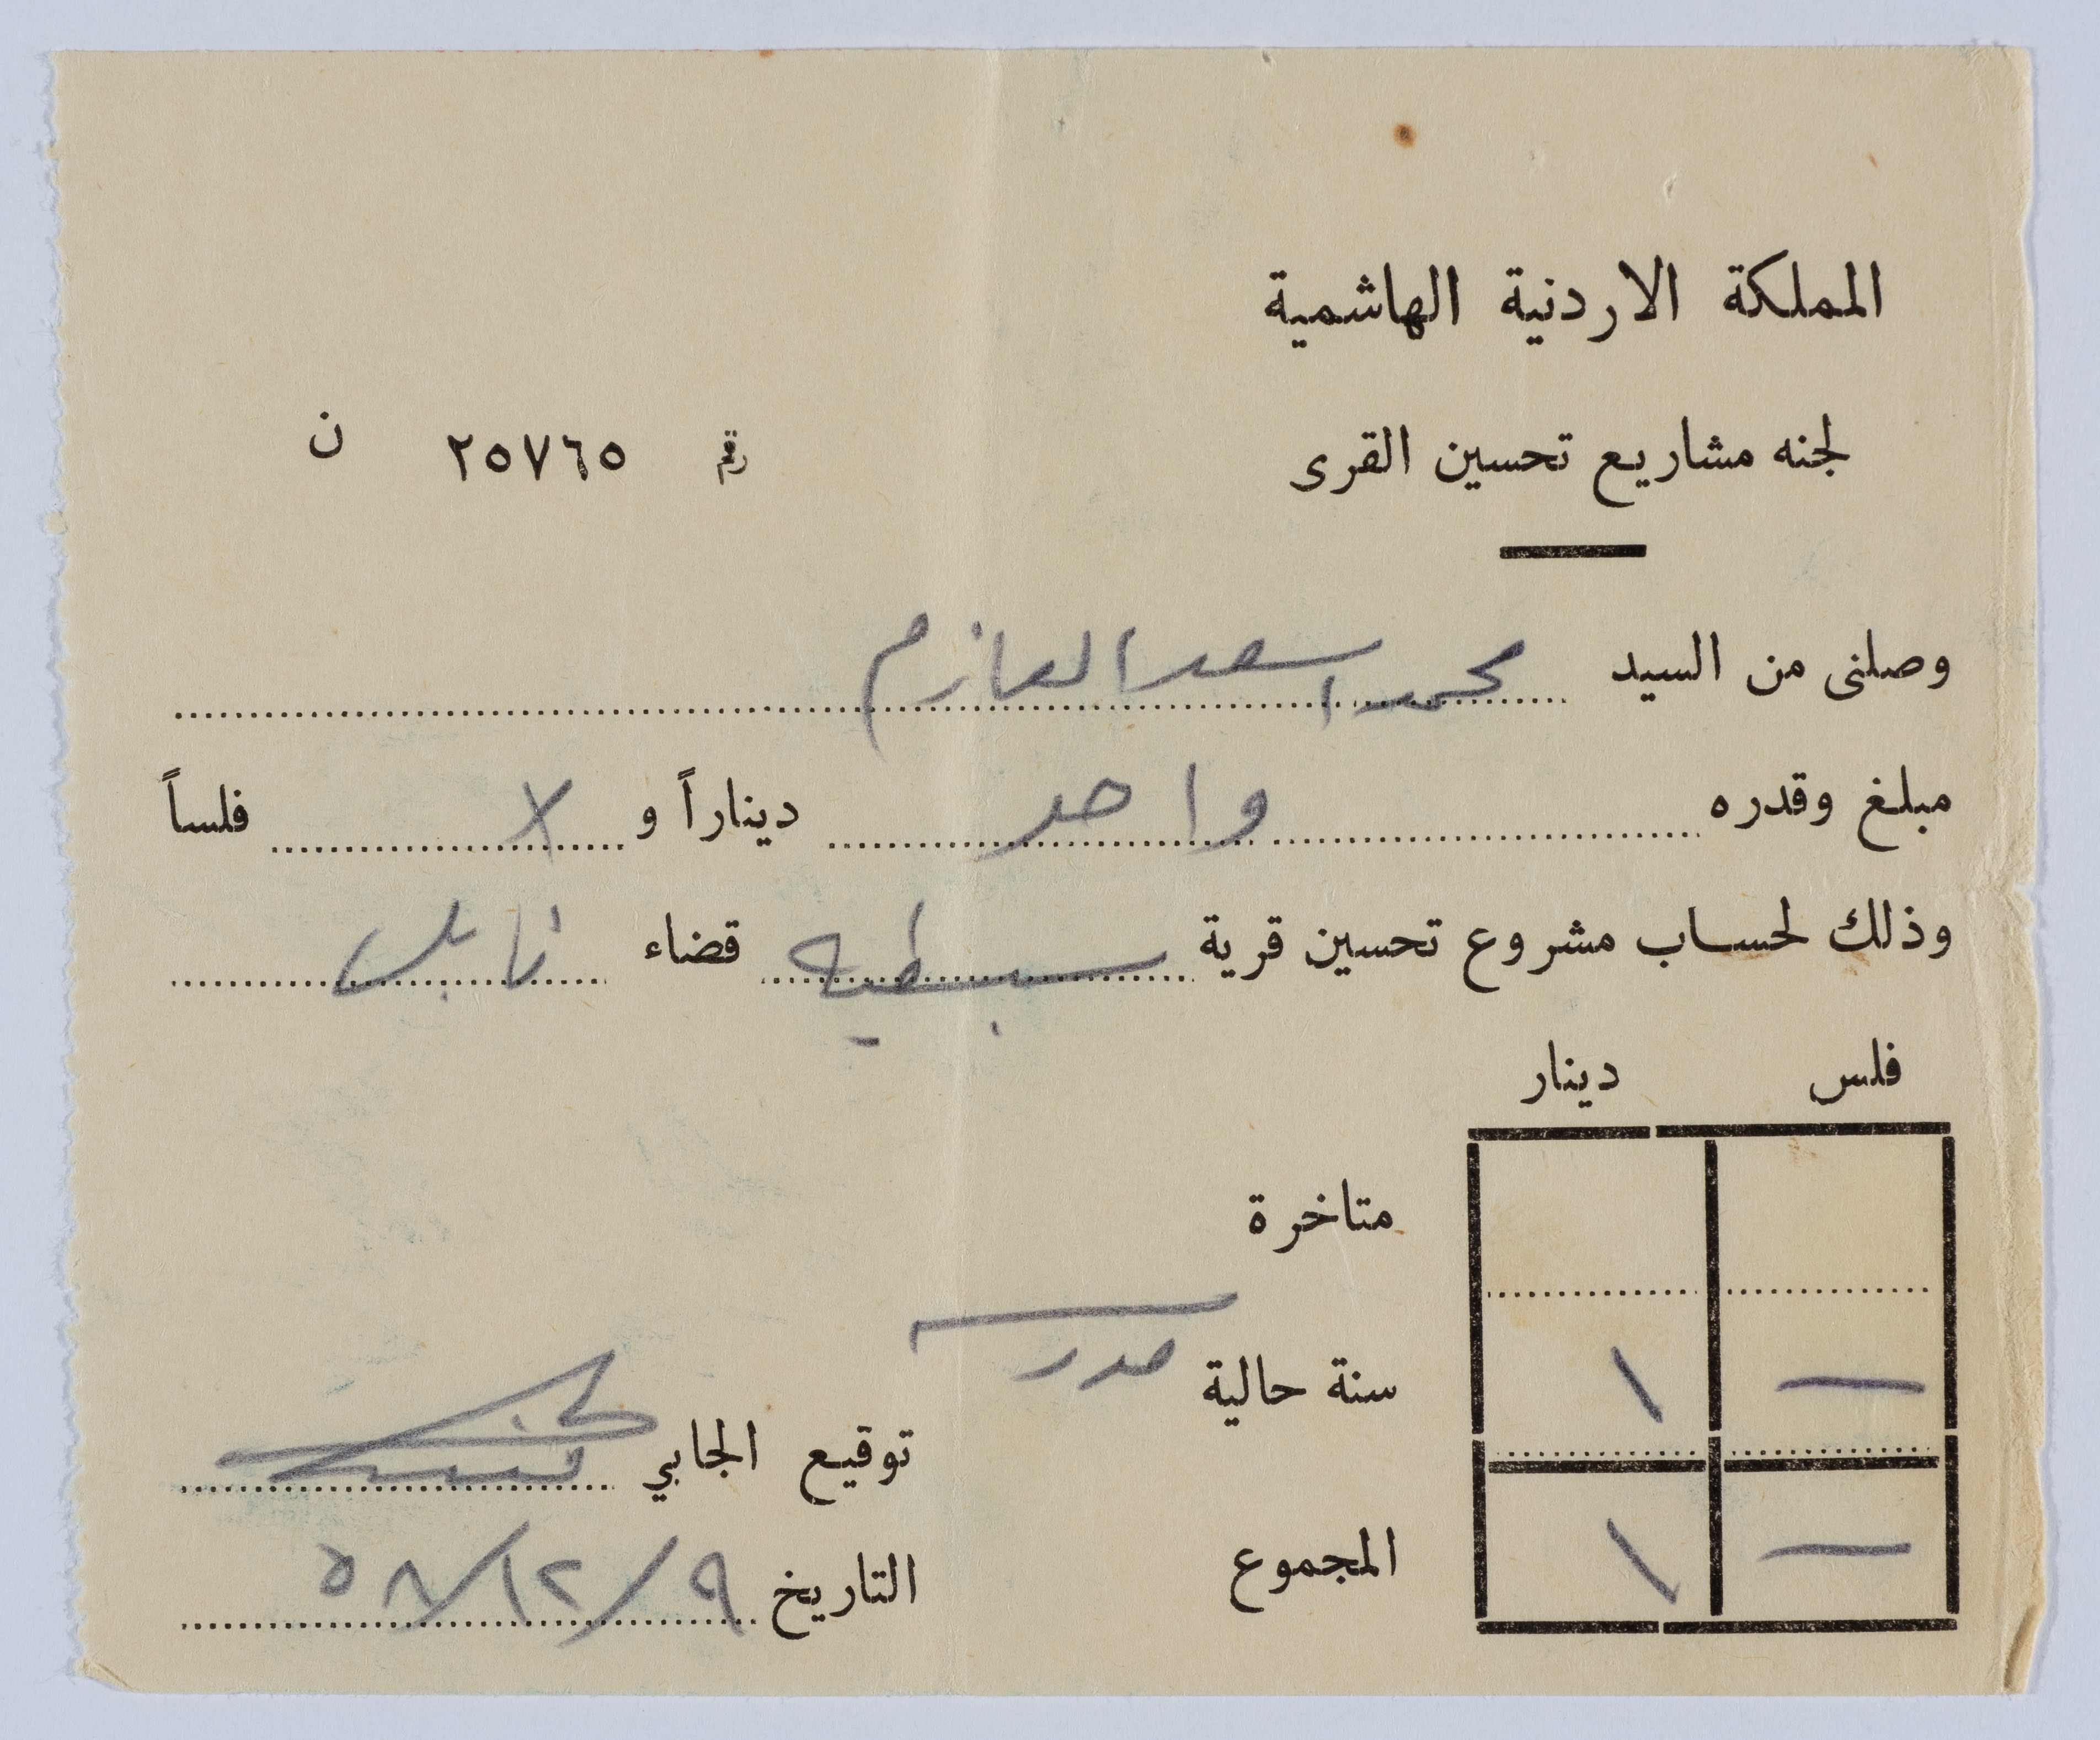 المملكة الاردنية الهاشمية
لجنه مشاريع تحسين القرى
رقم ٢٥٧٦٥ ن
وصلنى من السيد محمد اسعد العازم
مبلغ وقدره واحد ديناراً و لا فلساً
وذلك لحساب مشروع تحسين قرية سبسطيه قضاء نابلس
فلس دينار
متاخرة
— ١ سنة حالية
توقيع الجابي
— ١ المجموع
التاريخ ٩/١٢/٥٨